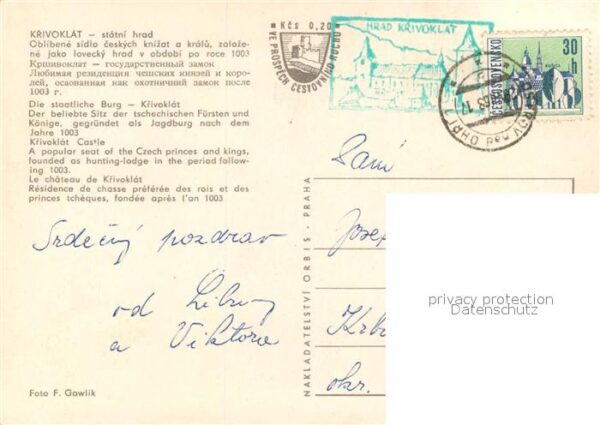 KŘIVOKLÁT – státní hrad
Oblíbené sídlo českých knížat a králů, založe-
né jako lovecký hrad v období po roce 1003
Крживоклат — государственный замок
Любимая резиденция чешских князей и коро-
лей, основанная как охотничий замок после
1003 г.
Die staatliche Burg – Křivoklát
Der beliebte Sitz der tschechischen Fürsten und
Könige, gegründet als Jagdburg nach dem
Jahre 1003
Křivoklát Castle
A popular seat of the Czech princes and kings,
founded as hunting-lodge in the period follow-
ing 1003.
Le château de Křivoklát
Résidence de chasse préférée des rois et des
princes tchèques, fondée après l'an 1003
Kčs 0,20
VE PROSPĚCH CESTOVNÍHO RUCHU
HRAD KŘIVOKLÁT
ČESKOSLOVENSKO
30
h
Srdečný pozdrav
od Libuny
a Viktorie
Foto F. Gawlik
NAKLADATELSTVÍ ORBIS · PRAHA
Paní
Josef
Krb
okr.
privacy protection
Datenschutz